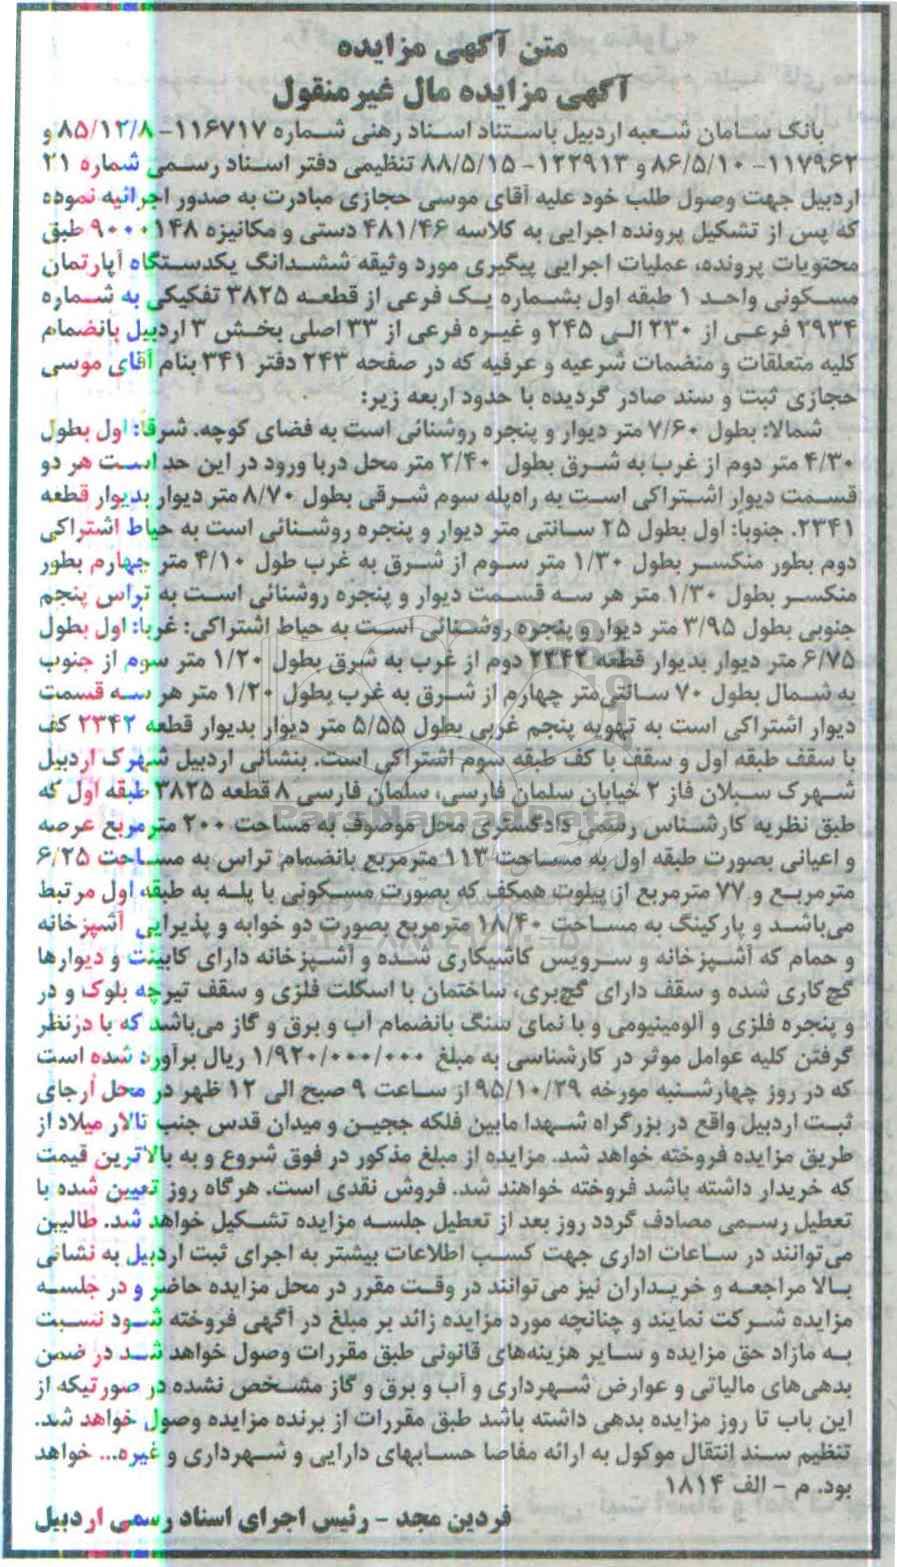 متن آگهی مزایده
آگهی مزایده مال غیرمنقول
بانک سامان شعبه اردبیل باستناد اسناد رهنی شماره ۱۱۶۷۱۷- ۸۵/۱۲/۸ و
۱۱۷۹۶۲- ۸۶/۵/۱۰ و ۱۲۲۹۱۳- ۸۸/۵/۱۵ تنظیمی دفتر اسناد رسمی شماره ۲۱
اردبیل جهت وصول طلب خود علیه آقای موسی حجازی مبادرت به صدور اجرائیه نموده
که پس از تشکیل پرونده اجرایی به کلاسه ۴۸۱/۴۶ دستی و مکانیزه ۹۰۰۰۱۴۸ طبق
محتویات پرونده، عملیات اجرایی پیگیری مورد وثیقه ششدانگ یکدستگاه آپارتمان
مسکونی واحد ۱ طبقه اول بشماره یک فرعی از قطعه ۳۸۲۵ تفکیکی به شماره
۲۹۳۴ فرعی از ۲۳۰ الی ۲۴۵ و غیره فرعی از ۳۳ اصلی بخش ۳ اردبیل بانضمام
کلیه متعلقات و منضمات شرعیه و عرفیه که در صفحه ۲۴۳ دفتر ۳۴۱ بنام آقای موسی
حجازی ثبت و سند صادر گردیده با حدود اربعه زیر:
شمالا: بطول ۷/۶۰ متر دیوار و پنجره روشنائی است به فضای کوچه. شرقاً: اول بطول
۴/۳۰ متر دوم از غرب به شرق بطول ۲/۴۰ متر محل دربا ورود در این حد است هر دو
قسمت دیوار اشتراکی است به راه‌پله سوم شرقی بطول ۸/۷۰ متر دیوار بدیوار قطعه
۲۳۴۱. جنوبا: اول بطول ۲۵ سانتی متر دیوار و پنجره روشنائی است به حیاط اشتراکی
دوم بطور منکسر بطول ۱/۳۰ متر سوم از شرق به غرب طول ۴/۱۰ متر چهارم بطور
منکسر بطول ۱/۳۰ متر هر سه قسمت دیوار و پنجره روشنائی است به تراس پنجم
جنوبی بطول ۳/۹۵ متر دیوار و پنجره روشنائی است به حیاط اشتراکی: غربا: اول بطول
۶/۷۵ متر دیوار بدیوار قطعه ۲۳۴۲ دوم از غرب به شرق بطول ۱/۲۰ متر سوم از جنوب
به شمال بطول ۷۰ سانتی‌متر چهارم از شرق به غرب بطول ۱/۲۰ متر هر سه قسمت
دیوار اشتراکی است به تهویه پنجم غربی بطول ۵/۵۵ متر دیوار بدیوار قطعه ۲۳۴۲ کف
با سقف طبقه اول و سقف با کف طبقه سوم اشتراکی است. بنشانی اردبیل شهرک اردبیل
شهرک سبلان فاز ۲ خیابان سلمان فارسی، سلمان فارسی ۸ قطعه ۳۸۲۵ طبقه اول که
طبق نظریه کارشناس رسمی دادگستری محل موصوف به مساحت ۲۰۰ مترمربع عرصه
و اعیانی بصورت طبقه اول به مساحت ۱۱۳ مترمربع بانضمام تراس به مساحت ۶/۲۵
مترمربع و ۷۷ مترمربع از پیلوت همکف که بصورت مسکونی با پله به طبقه اول مرتبط
می‌باشد و پارکینگ به مساحت ۱۸/۴۰ مترمربع بصورت دو خوابه و پذیرایی آشپزخانه
و حمام که آشپزخانه و سرویس کاشیکاری شده و آشپزخانه دارای کابینت و دیوارها
گچ‌کاری شده و سقف دارای گچ‌بری، ساختمان با اسکلت فلزی و سقف تیرچه بلوک و در
و پنجره فلزی و آلومینیومی و با نمای سنگ بانضمام آب و برق و گاز می‌باشد که با درنظر
گرفتن کلیه عوامل موثر در کارشناسی به مبلغ ۱/۹۲۰/۰۰۰/۰۰۰ ریال برآورد شده است
که در روز چهارشنبه مورخه ۹۵/۱۰/۲۹ از ساعت ۹ صبح الی ۱۲ ظهر در محل اجرای
ثبت اردبیل واقع در بزرگراه شهدا مابین فلکه ججین و میدان قدس جنب تالار میلاد از
طریق مزایده فروخته خواهد شد. مزایده از مبلغ مذکور در فوق شروع و به بالاترین قیمت
که خریدار داشته باشد فروخته خواهند شد. فروش نقدی است. هرگاه روز تعیین شده با
تعطیل رسمی مصادف گردد روز بعد از تعطیل جلسه مزایده تشکیل خواهد شد. طالبین
می‌توانند در ساعات اداری جهت کسب اطلاعات بیشتر به اجرای ثبت اردبیل به نشانی
بالا مراجعه و خریداران نیز می‌توانند در وقت مقرر در محل مزایده حاضر و در جلسه
مزایده شرکت نمایند و چنانچه مورد مزایده زائد بر مبلغ در آگهی فروخته شود نسبت
به مازاد حق مزایده و سایر هزینه‌های قانونی طبق مقررات وصول خواهد شد در ضمن
بدهی‌های مالیاتی و عوارض شهرداری و آب و برق و گاز مشخص نشده در صورتیکه از
این باب تا روز مزایده بدهی داشته باشد طبق مقررات از برنده مزایده وصول خواهد شد.
تنظیم سند انتقال موکول به ارائه مفاصا حسابهای دارایی و شهرداری و غیره... خواهد
بود. م - الف ۱۸۱۴
فردین مجد - رئیس اجرای اسناد رسمی اردبیل
ParsNamadData